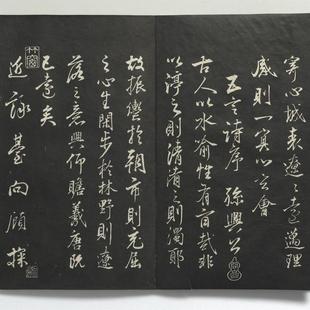 心域表遼遼遠邁理
感則一冥心玄會
五言詩序 孫興公
古人以水喻性有旨哉非
以渟之則清淆之則濁耶
故振轡於朝市則充屈
之心生閑步於林野則遼
落之意興仰瞻羲唐邈
已遠矣
近詠臺閣顧探